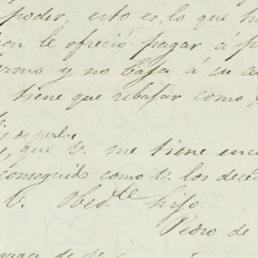 poder, esto es, lo que h
le ofreció pagar á p
y no baja á su a
tiene que rebajar como
que V. me tiene enc
conseguido como V. los dece
V. Obed.te hijo.
Pedro de